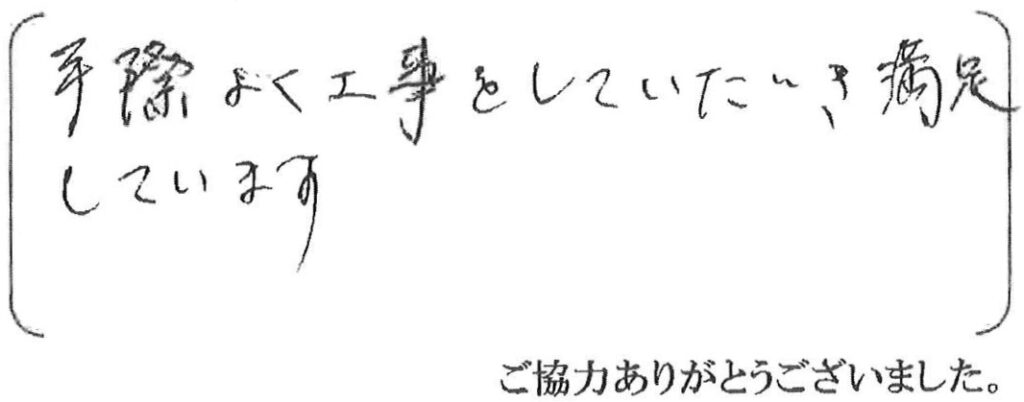 手際よく工事をしていただき満足
しています
ご協力ありがとうございました。